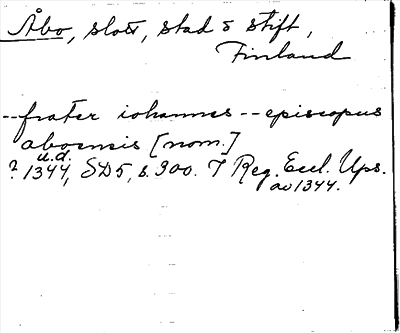 Åbo, slott, stad & stift,
Finland
--frater iohannes--episcopus
aboensis [nom.]
u.d.
? 1344, SD5, s. 300. T Reg. Eccl. Ups.
av 1344.